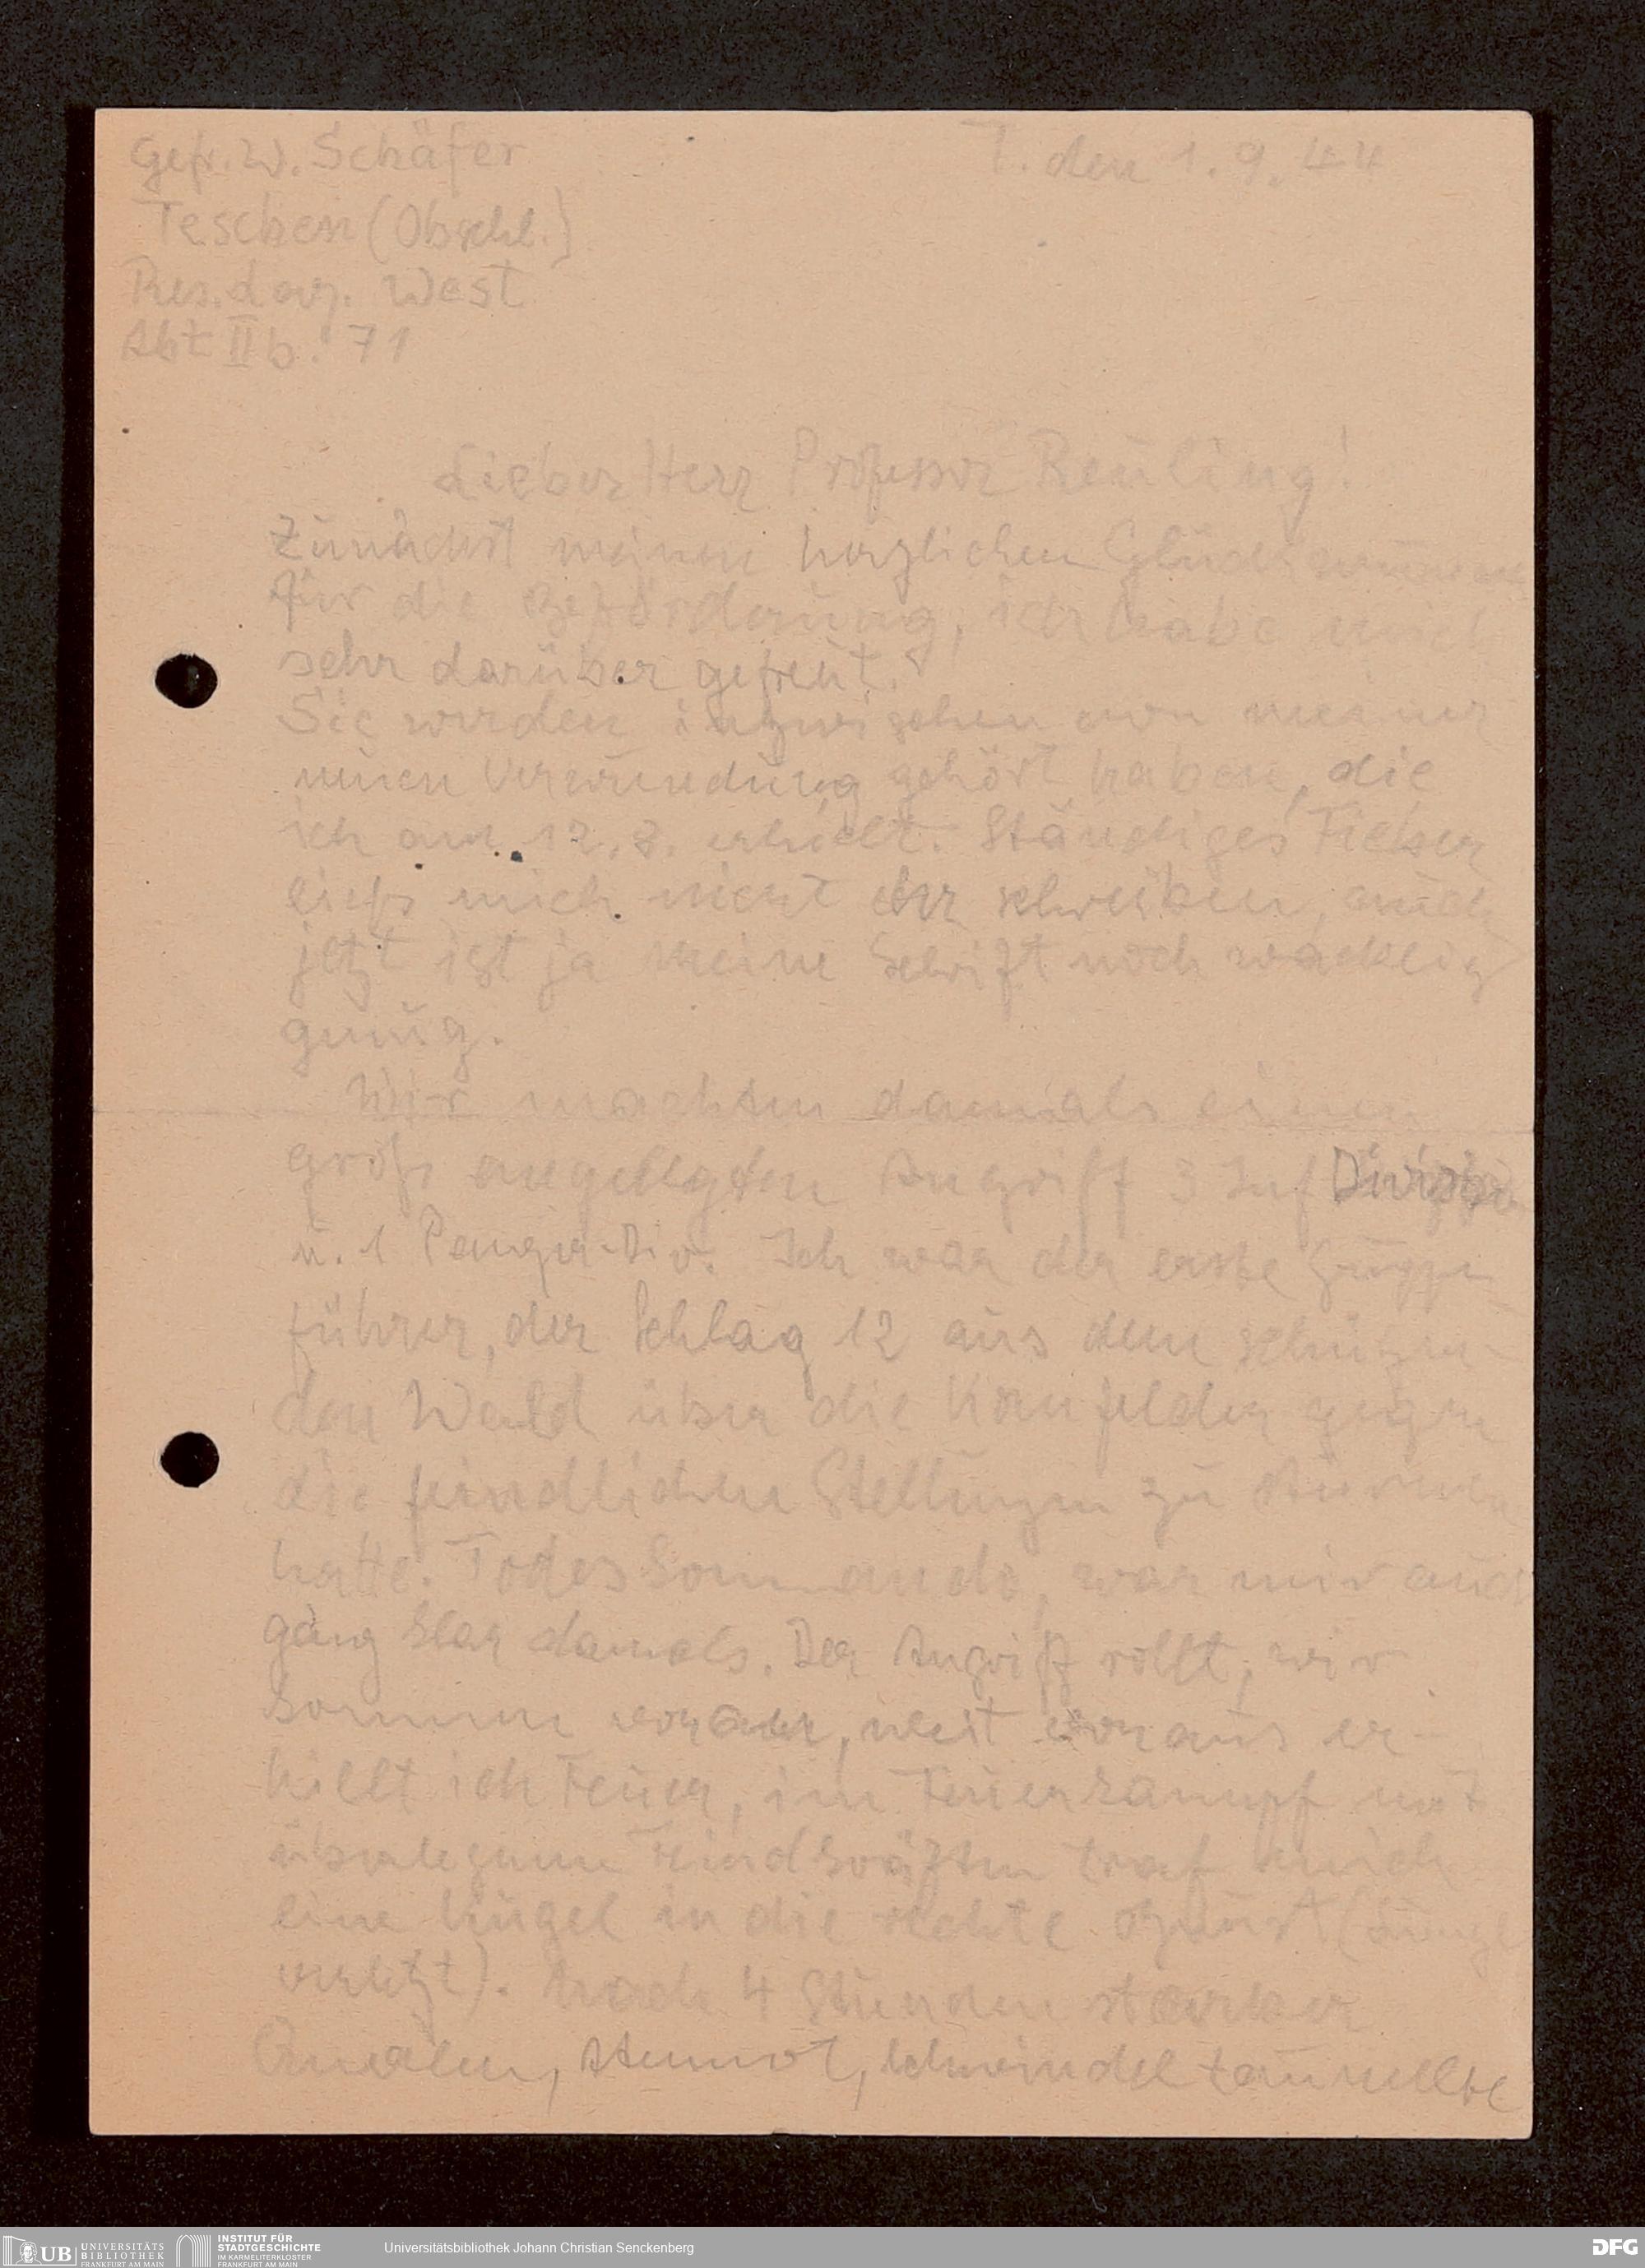 Gefr. W. Schäfer
T. den 1.9.44
Teschen (Obschl.)
Res. Laz. West
Abt IIb. 71
Lieber Herr Professor Reuling!
Zunächst meinen herzlichen
für die Beförderung, ich habe mich
sehr darüber gefreut.
Sie werden inzwischen von meiner
neuen Verwundung gehört haben, die
ich am 12.8. erhielt. Ständiges Fieber
ließ mich nicht eher schreiben auch
jetzt ist ja meine Schrift noch wacklig
genug.
Wir machten damals einen
groß angelegten Angriff 3 Inf
u. 1 Panzer-Div. Ich war der erste Gruppen
führer, der Schlag 12 aus dem schützen-
den Wald über die Kornfelder gegen
die feindlichen Stellungen zu stürmen
hatte. Todeskommando, war mir auch
ganz klar damals. Der Angriff rollt, wir
kommen voran, weit voraus er-
hielt ich Feuer, im Feuerkampf mit
überlegenen Feindkräften traf mich
eine Kugel in die rechte Brust (Lunge
verletzt). Nach 4 Stunden starker
Qualen, Atemnot, Schwindel taumelte
UB UNIVERSITÄTS
BIBLIOTHEK
FRANKFURT AM MAIN
INSTITUT FÜR
STADTGESCHICHTE
IM KARMELITERKLOSTER
FRANKFURT AM MAIN
Universitätsbibliothek Johann Christian Senckenberg
DFG